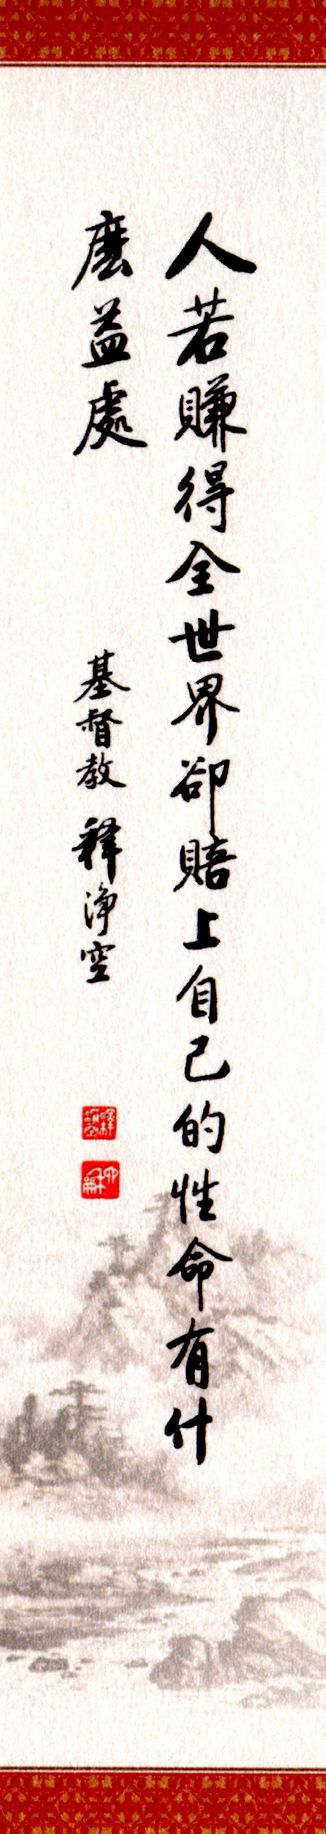 人若賺得全世界卻賠上自己的性命有什
麼益處
基督教 釋淨空